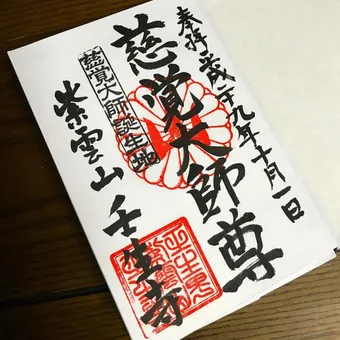 奉拝 平成二十九年十月一日
慈覚大師尊
慈覺大師誕生地
紫雲山 壬生寺